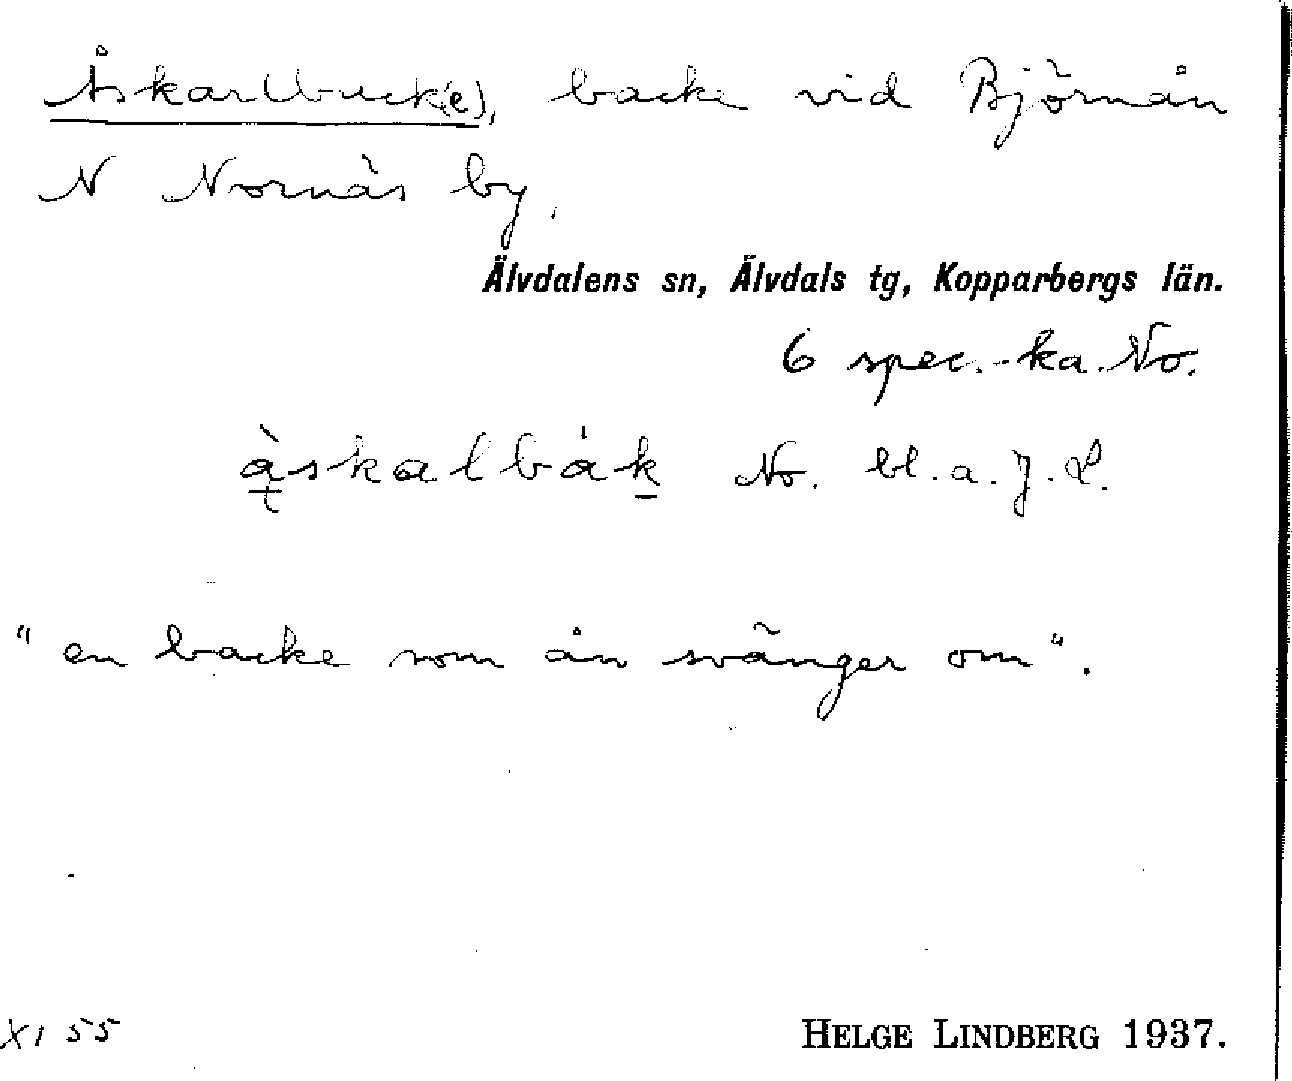 Åskarlbuck(e), backe vid Björnån
N Nornäs by.
Älvdalens sn, Älvdals tg, Kopparbergs län.
6 spec.-ka. No.
àskalbák No. bl.a. J.L.
"en backe som ån svänger om".
XI 55
HELGE LINDBERG 1937.